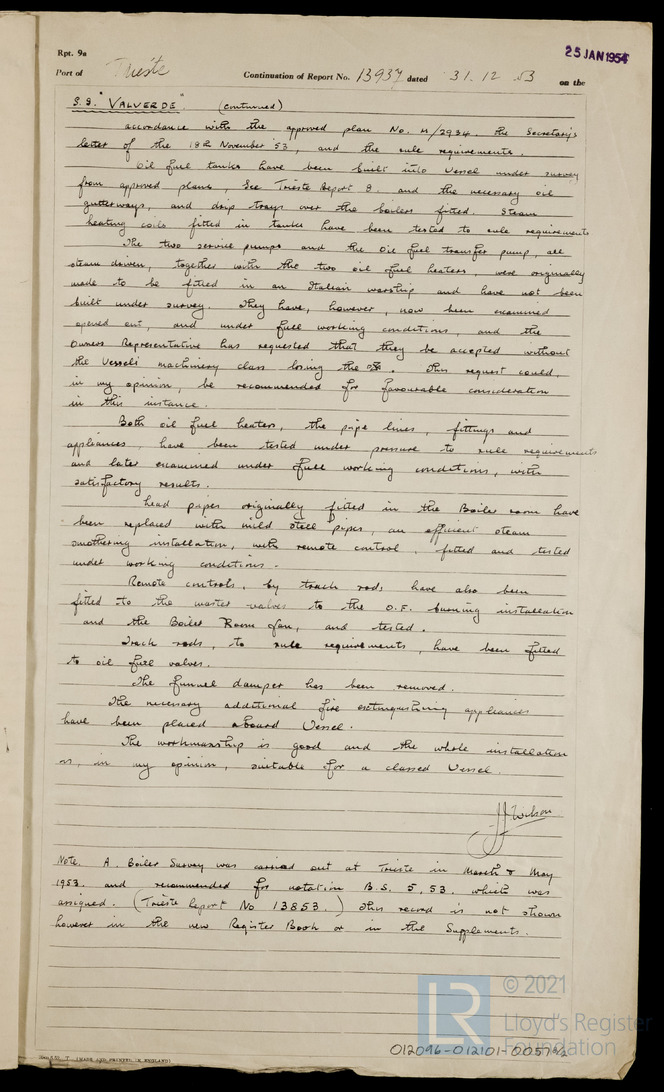 Rpt. 9a
25 JAN 1954
Port of Trieste Continuation of Report No. 13937 dated 31.12.53 on the
S.S. "VALVERDE" (continued)
accordance with the approved plan No. H/2934. The Secretary's
letter of the 18th November '53, and the rule requirements.
Oil fuel tanks have been built into Vessel under survey
from approved plans, See Trieste Report 8. and the necessary oil
gutterways, and drip trays over the boilers fitted. Steam
heating coils fitted in tanks have been tested to rule requirements
The two service pumps and the Oil fuel transfer pump, all
steam driven, together with the two oil fuel heaters, were originally
made to be fitted in an Italian warship and have not been
built under survey. They have, however, now been examined
opened out, and under full working conditions, and the
Owners Representative has requested that they be accepted without
the Vessels machinery class losing the. This request could,
in my opinion, be recommended for favourable consideration
in this instance.
Both oil fuel heaters, the pipe lines, fittings and
appliances, have been tested under pressure to rule requirements
and later examined under full working conditions, with
satisfactory results.
Lead pipes originally fitted in the Boiler room have
been replaced with mild steel pipes, an efficient steam
smothering installation, with remote control, fitted and tested
under working conditions.
Remote controls, by track rods have also been
fitted to the master valves to the O.F. burning installation
and the Boiler Room fan, and tested.
Track rods, to rule requirements, have been fitted
to oil fuel valves.
The funnel damper has been removed.
The necessary additional fire extinguishing appliances
have been placed aboard Vessel.
The workmanship is good and the whole installation
is, in my opinion, suitable for a classed Vessel.
JJ Wilson
Note. A. Boiler Survey was carried out at Trieste in March & May
1953. and recommended for notation B.S. 5,53. which was
assigned. (Trieste Report No 13853.) This record is not shown
however in the new Register Book or in the Supplements.
© 2021
LR
Lloyd's Register
Foundation
012096-012101-0057 2/2
T. (MADE AND PRINTED IN ENGLAND)